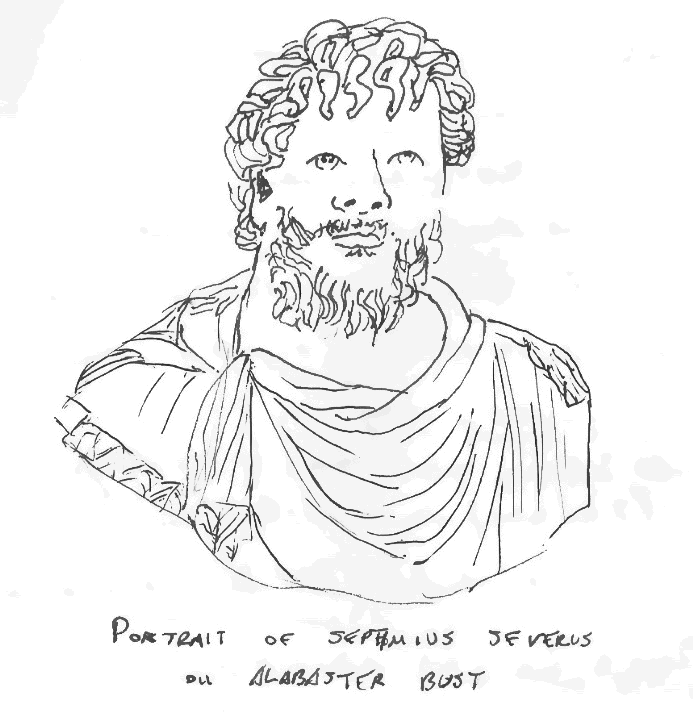 PORTRAIT OF SEPTIMIUS SEVERUS
ON ALABASTER BUST